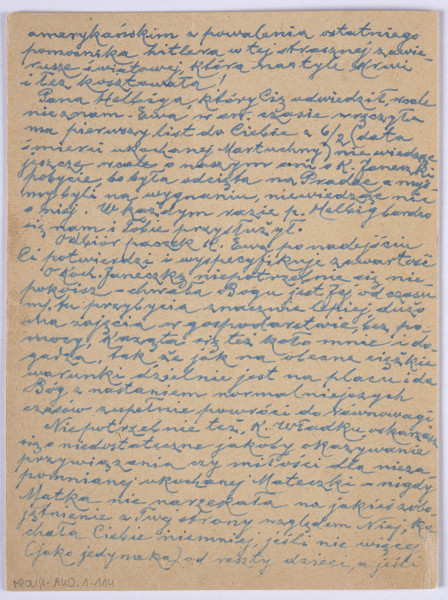 amerykańskim z powalenia ostatniego
pomocnika hitlera w tej strasznej zawie-
rusze światowej, która nas tyle krwi
i łez kosztowała!
Pana Helbiga, który Cię odwiedził, wcale
nie znam. Ewa w sw. czasie wręczyła
ma pierwszy list do Ciebie z 6/2 (data
śmierci ukochanej Martuchny) nie wiedząc
jeszcze wcale o naszym ani o K. Janeczki
pobycie bo była odcięta na Pradze a myś
my byli na wygnaniu, niewiedząc nic
o niej. W każdym razie p. Helbig bardzo
się nam i Tobie przysłużył.
Odbiór paczek K. Ewa po nadejściu
Ci potwierdzi i wyspecyfikuje zawartość
O Koch. Janeczkę niepotrzebnie się nie-
pokoisz – chwała Bogu jest Jej od czasu
m. tu przybycia znacznie lepiej, dużo
ma zajęcia w gospodarstwie, bez po-
mocy, krząta się też koło mnie i do-
gadza, tak że jak na obecne ciężkie
warunki dzielnie jest na placu i da
Bóg z nastaniem normalniejszych
czasów zupełnie powróci do równowagi.
Niepotrzebnie też, K. Władku oskarżasz
się o niedostateczne jakoby okazywanie
przywiązania czy miłości dla nieza-
pomnianej ukochanej Mateczki – nigdy
Matka nie narzekała na jakieś zobo-
jętnienie z Twej strony względem Niej, ko-
chała Ciebie niemniej, jeśli nie więcej
(jako jedynaka) od reszty dzieci, a jeśli